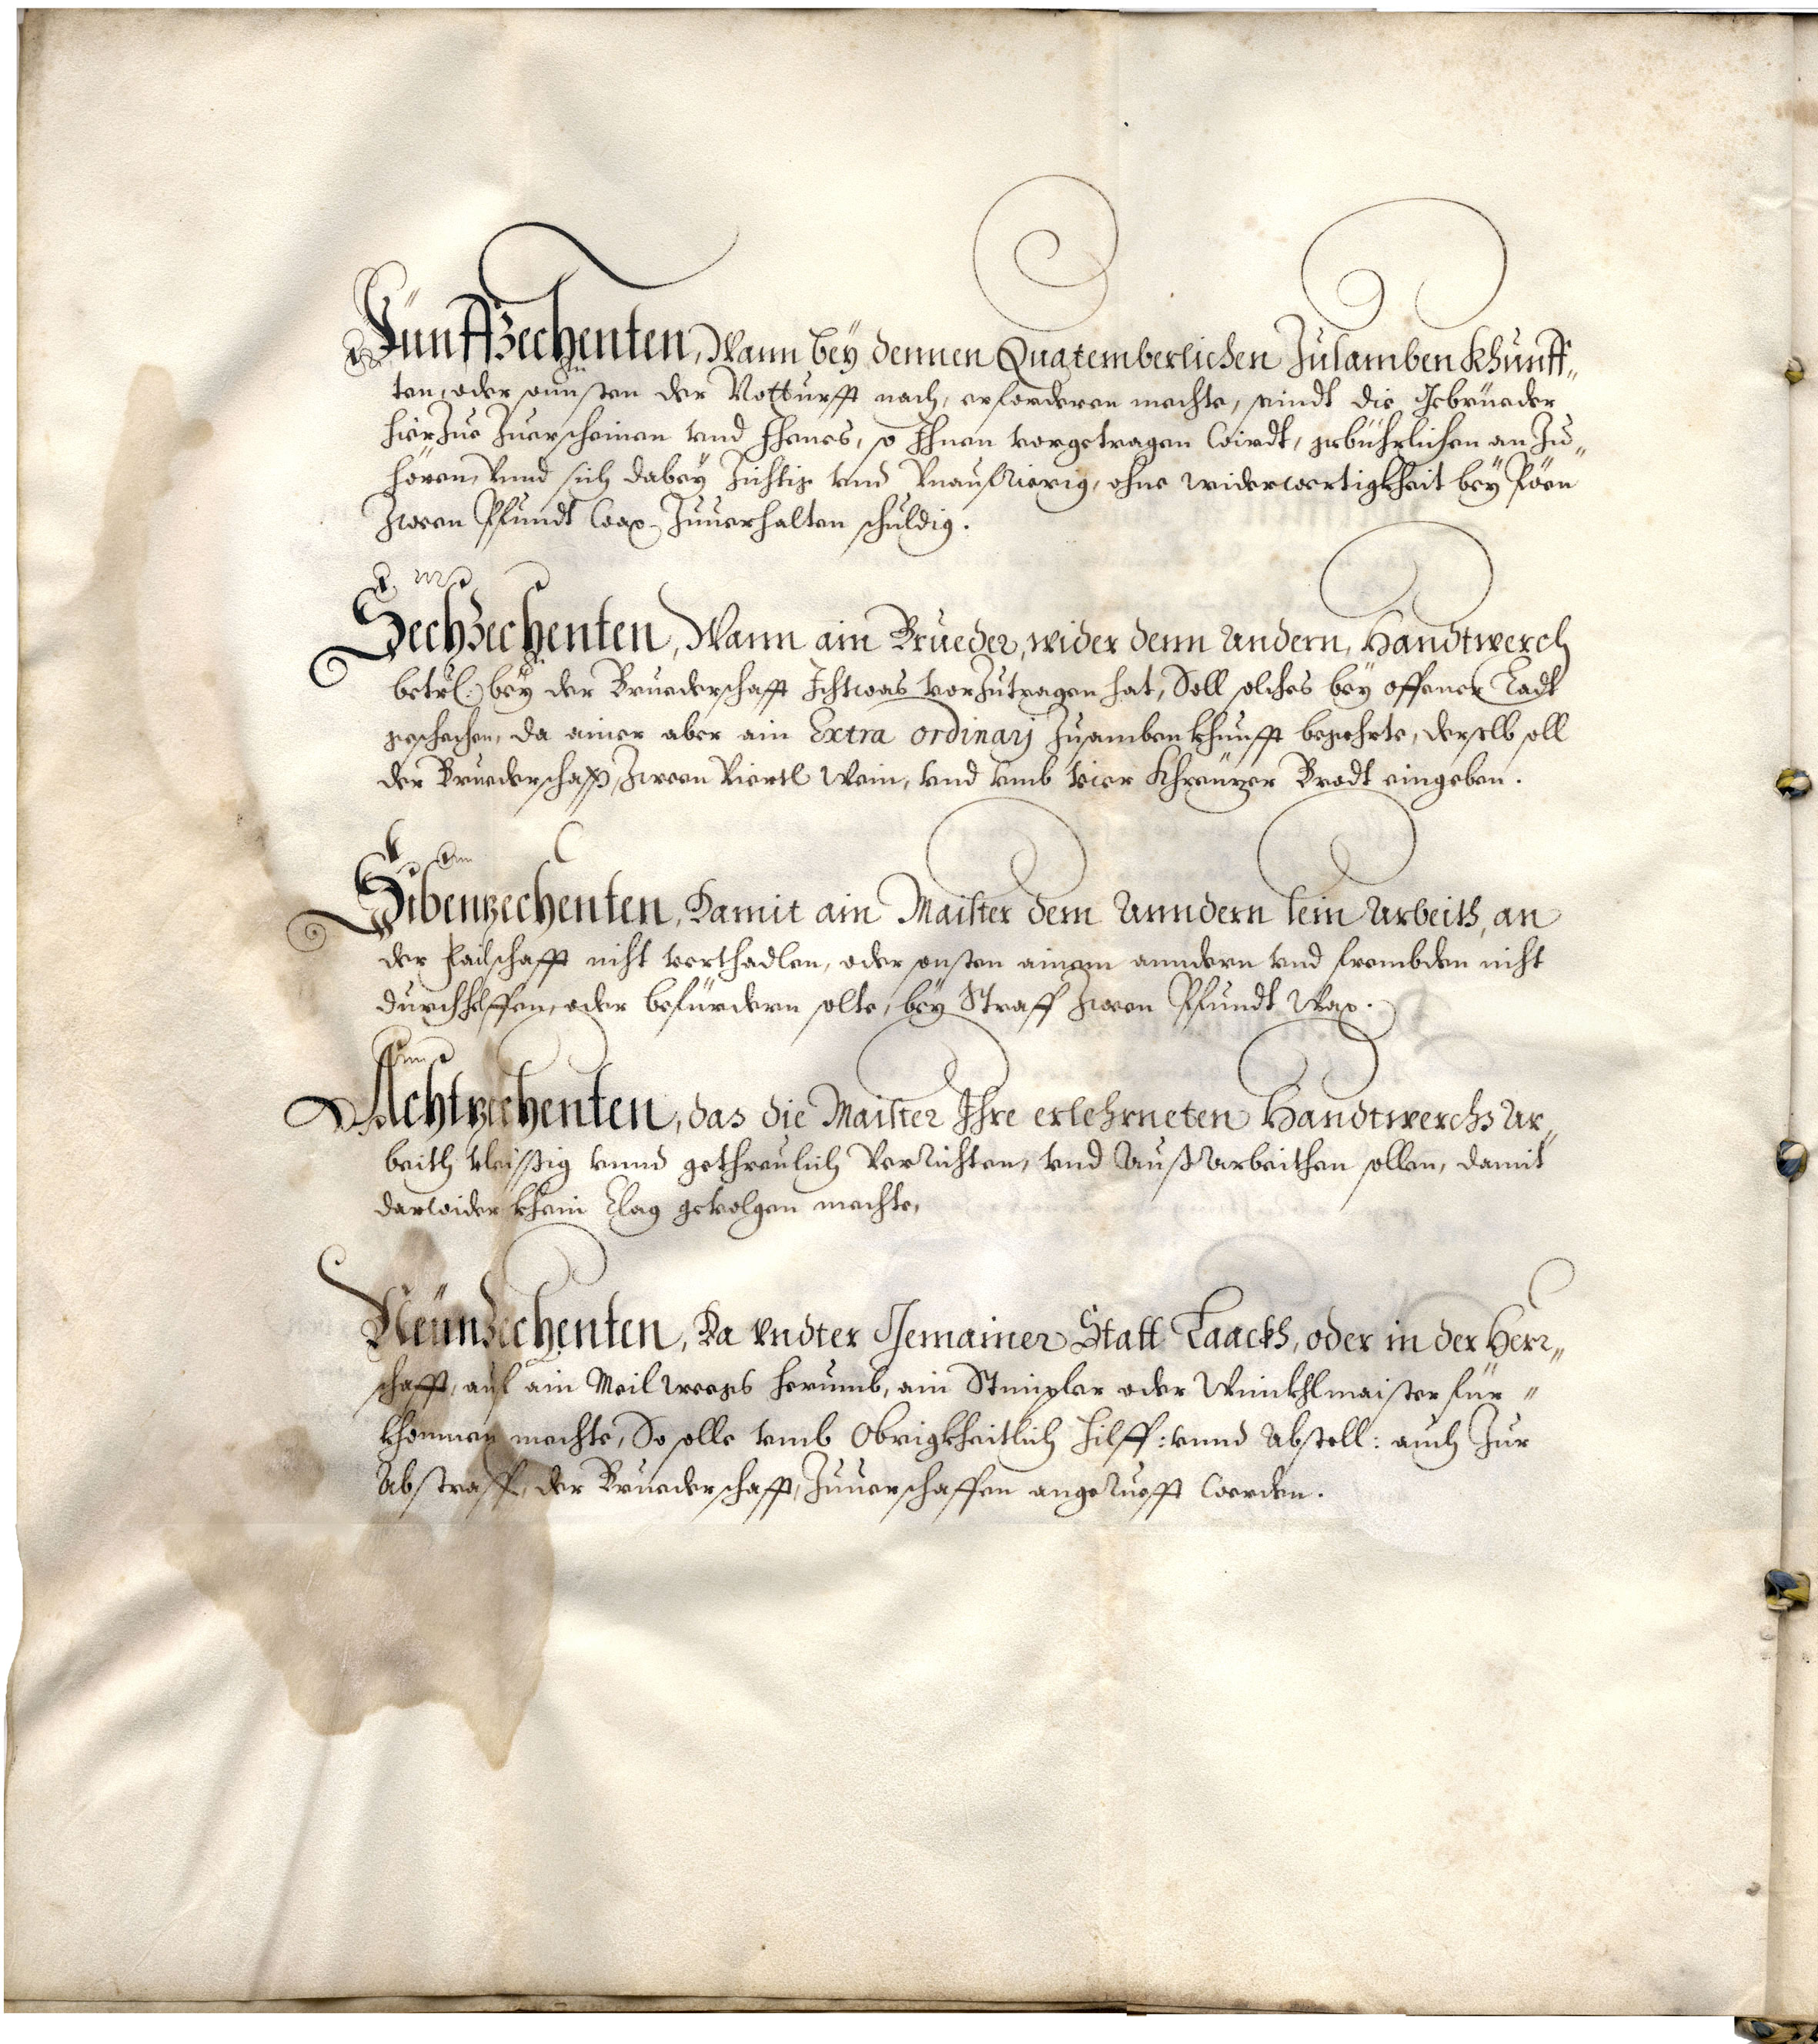 Fünffzechenten, Wann beÿ dennen Quatemberlichen Zusamben Khunff„
ten, oder sonnsten der Notturfft nach, erforderen mechte, seindt die Gebrüeder
hierZue Zuerscheinen vnd Jhenes, so Jhnen vorgetragen wirdt, gebührlichen an Zu„
hören, Vnnd sich dabeÿ Züchtig vnd Vnaufrierig, ohne widerwertigkheit beÿ Pöen
Zween Pfundt wax Zuuerhalten schuldig.
Sechzechenten, Wann ain Brueder, wider denn Andern, Handtwerch
betrl: beÿ der Bruederschafft Ichtwas vorZutragen hat, Soll solches beÿ offener Ladt
geschechen, da ainer aber ain Extra ordinarj Zusambenkhunfft begehrte, derselb soll
der Bruederschafft, Zween Viertl Wein, vnd vmb vier Khreüzer Brodt eingeben.
Sibenzechenten, Damit ain Maister dem Anndern sein Arbeith, an
der failschafft nicht verthadlen, oder sonsten ainem anndern vnd frembden nicht
durchhelffen, oder befürdern solte, beÿ Straff Zween Pfundt Wax.
Achtzechenten, das die Maister Ihre erlehrneten Handtwerchs Ar„
beith vleissig vnnd gethreulich Verrichten, vnd Auß Arbeithen sollen, damit
darwider khein Clag gevolgen mechte,
Neünzechenten, Da vndter Gemainer Statt Laackh, oder in der Herr„
schafft, auf ain Meil weegs herumb, ain Stimpler oder Winkhlmaister für„
khommen mechte, So solle vmb Obrigkheitlich hilff: vnnd Abstell: auch Zur
Abstraff, der Bruederschafft, Zuuerschaffen angeRuefft werden.